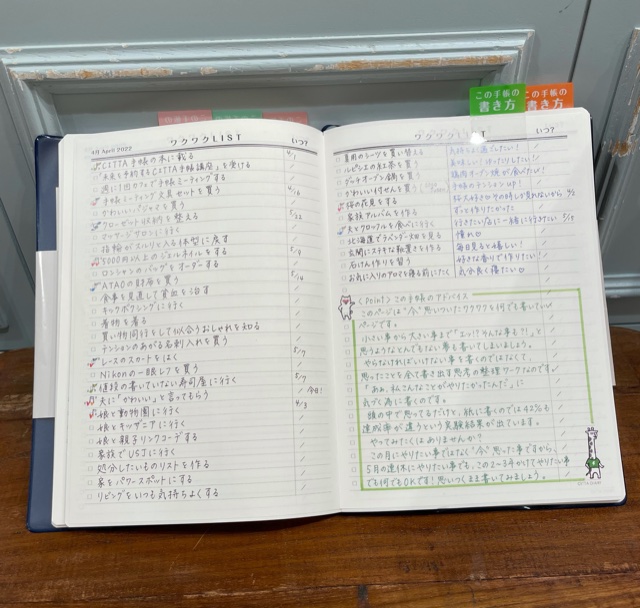 この手帳の
書き方
この手帳の
書き方
4月 April 2022
ワクワクLIST
いつ?
CITTA手帳の本に載る 4/1
「未来を予約するCITTA手帳講座」を受ける
週に1回カフェで手帳ミーティングする
手帳ミーティング文具セットを買う
かわいいパジャマを買う
クローゼット収納を整える 5/22
マッサージサロンに行く
指輪がスルリと入る体型に戻す
5000円以上のジェルネイルをする 5/9
ロンシャンのバッグをオーダーする
ATAOの財布を買う
食事を見直して貧血を治す
キックボクシングに行く
着物を着る
買い物同行をして似合うおしゃれを知る
テンションのあがる名刺入れを買う
レースのスカートをはく 5/7
Nikonの一眼レフを買う
値段の書いていない寿司屋に行く 5/7
夫に「かわいい」と言ってもらう 今日!
娘と動物園に行く 4/3
娘とキッザニアに行く
娘と親子リンクコーデする
家族でUSJに行く
処分したいものリストを作る
家をパワースポットにする
リビングをいつも気持ちよくする
ワクワクLIST
いつ?
夏用のシーツを買い替える
ルピシアの紅茶を買う
ダッチオーブン鍋を買う
かわいいサンダルを買う
梅の花見をする
家族アルバムを作る ずっと作りたかった
犬とドッグカフェを食べに行く
北海道でラベンダー畑を見る 憧れ♡
玄関にステキな靴置きを作る 毎日見ると嬉しい!
石けん作りを習う 好きな香りで作りたい!
お気に入りのアロマを寝る前にたく 気分良く寝たい♡
〈Point〉この手帳のアドバイス
このページは“今”思いついたワクワクを何でも書いていい
ページです。
小さい事から大きい事まで「エッ!?そんな事も?!」と
思うようなとんでもない事も書いてしまいましょう。
やらなければいけない事を書くのではなくて、
思ったことを全て書き出す思考の整理ワークなのです
「ああ、私こんなことがやりたかったんだ」に
気づく為に書くのです。
頭の中で思ってるだけと、紙に書くのでは42%も
達成率が違うという実験結果が出ています。
やってみたくはありませんか?
この月にやりたい事ではなく“今”思った事ですから、
5月の連休にやりたい事でも、この2〜3年かけてやりたい事
でも何でもOKです!思いつくまま書いてみましょう。